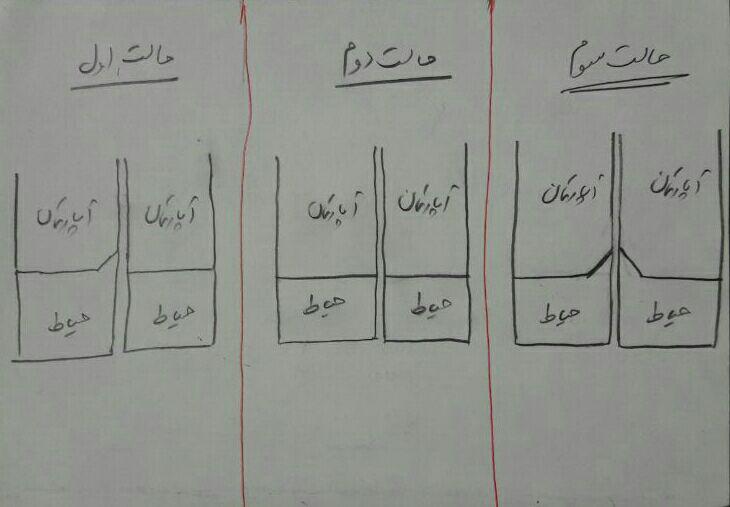 حالت اول
حالت دوم
حالت سوم
آپارتمان
آپارتمان
آپارتمان
آپارتمان
آپارتمان
آپارتمان
حیاط
حیاط
حیاط
حیاط
حیاط
حیاط